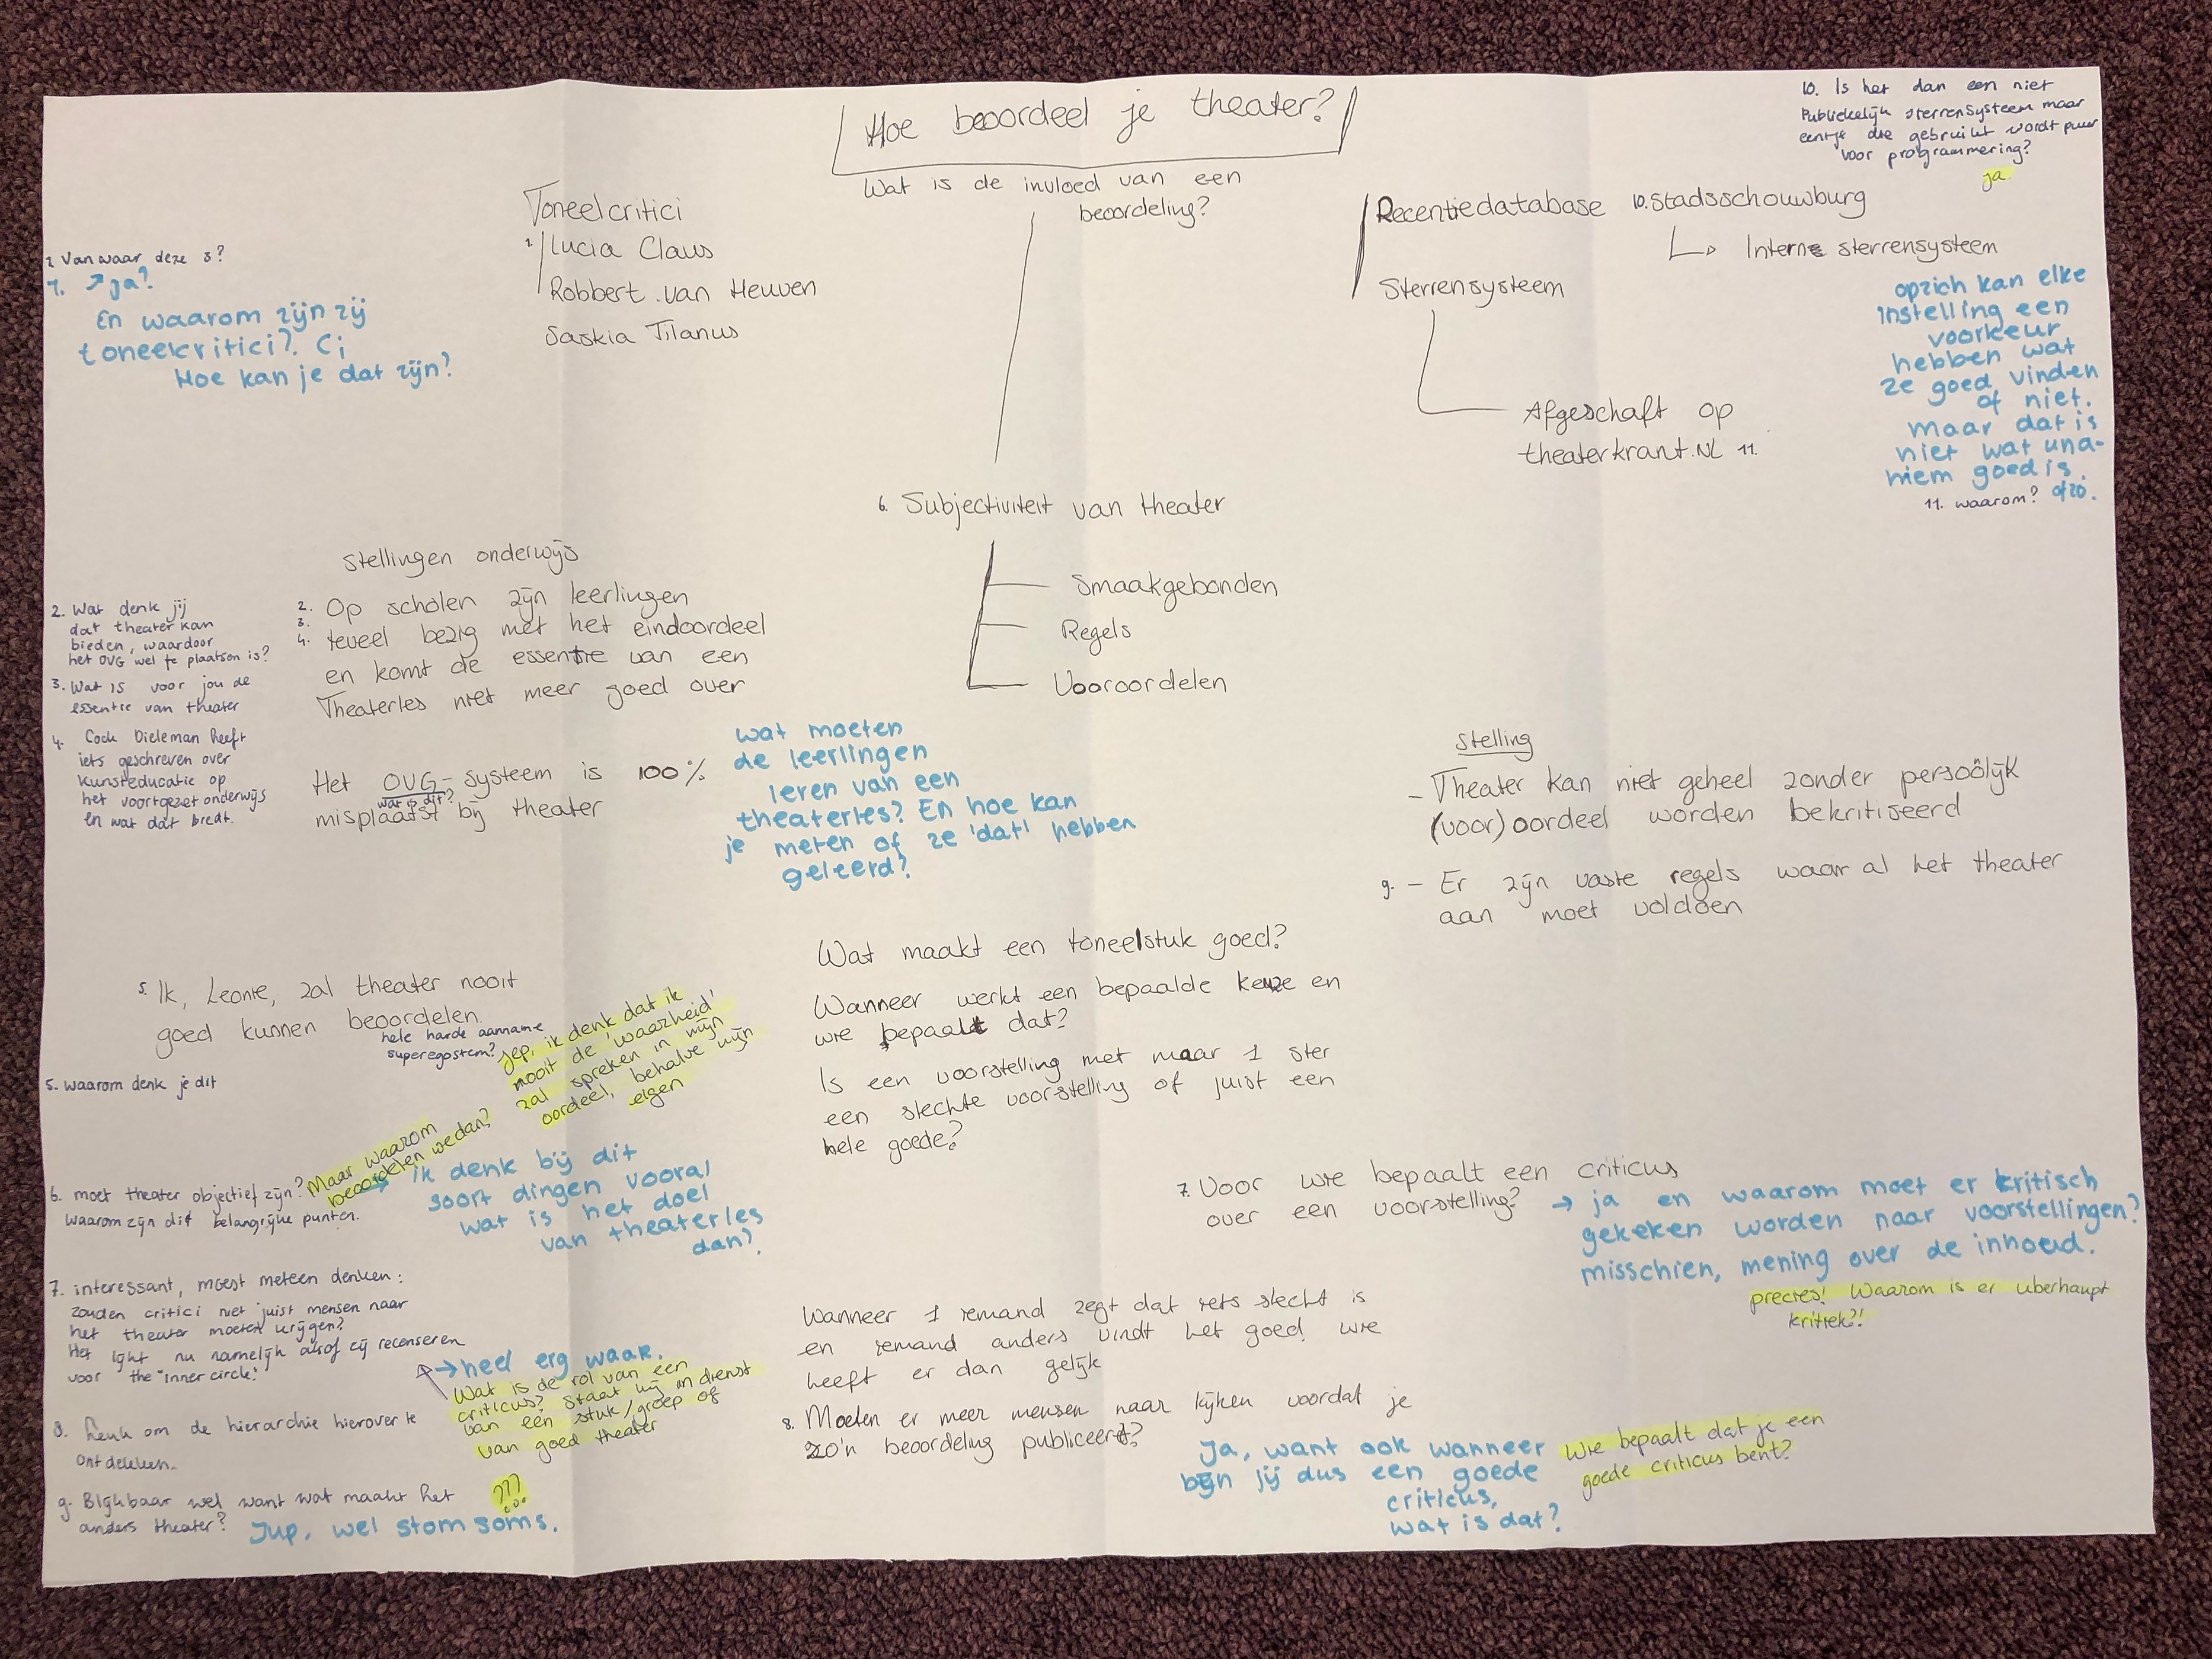 Hoe beoordeel je theater?
Wat is de invloed van een
beoordeling?
10. Is het dan een niet
Publiekelijk sterrensysteem maar
eentje die gebruikt wordt puur
voor programmering?
ja.
Toneelcritici
1. Lucia Claus
Robbert van Heuven
Saskia Tilanus
Recentiedatabase
Sterrensysteem
Afgeschaft op
theaterkrant.NL 11.
10. Stadsschouwburg
↳ Interne sterrensysteem
opzich kan elke
instelling een
voorkeur
hebben wat
ze goed vinden
of niet.
maar dat is
niet wat una-
niem goed is
ofzo.
11. waarom?
1. Van waar deze 3?
1. ↗ ja?
En waarom zijn zij
toneelcritici? Ci
Hoe kan je dat zijn?
6. Subjectiviteit van theater
Smaakgebonden
Regels
Vooroordelen
Stellingen onderwijs
2. Op scholen zijn leerlingen
3.
4. teveel bezig met het eindoordeel
en komt de essentie van een
Theaterles niet meer goed over
Het OVG-systeem is 100%
wat is dit?
misplaatst bij theater
2. Wat denk jij
dat theater kan
bieden, waardoor
het OVG wel te plaatsen is?
3. Wat is voor jou de
essentie van theater
4. Cock Dieleman heeft
iets geschreven over
kunsteducatie op
het voortgezet onderwijs
en wat dat biedt.
wat moeten
de leerlingen
leren van een
theaterles? En hoe kan
je meten of ze 'dat' hebben
geleerd?
Stelling
- Theater kan niet geheel zonder persoölijk
(voor)oordeel worden bekritiseerd
9. - Er zijn vaste regels waar al het theater
aan moet voldoen
5. Ik, Leonie, zal theater nooit
goed kunnen beoordelen.
hele harde aanname
superegostem?
Jep, ik denk dat ik
nooit de 'waarheid'
zal spreken in mijn
oordeel, behalve mijn
eigen
5. waarom denk je dit
Wat maakt een toneelstuk goed?
Wanneer werkt een bepaalde keuze en
wie bepaalt dat?
Is een voorstelling met maar 1 ster
een slechte voorstelling of juist een
hele goede?
6. moet theater objectief zijn?
waarom zijn dit belangrijke punten.
Maar waarom
beoordelen we dan?
→ ik denk bij dit
soort dingen vooral
wat is het doel
van theaterles
dan?
7. Voor wie bepaalt een criticus
over een voorstelling?
→ ja en waarom moet er kritisch
gekeken worden naar voorstellingen?
misschien, mening over de inhoud.
precies! Waarom is er uberhaupt
kritiek?!
7. interessant, moest meteen denken:
zouden critici niet juist mensen naar
het theater moeten krijgen?
Het lijkt nu namelijk alsof zij recenseren
voor the "inner circle"
→ heel erg waar.
Wat is de rol van een
criticus? Staat hij in dienst
van een stuk/groep of
van goed theater
Wanneer 1 iemand zegt dat iets slecht is
en iemand anders vindt het goed, wie
heeft er dan gelijk
8. Moeten er meer mensen naar kijken voordat je
zo'n beoordeling publiceert?
Ja, want ook wanneer
ben jij dus een goede
criticus,
wat is dat?
Wie bepaalt dat je een
goede criticus bent?
8. Leuk om de hierarchie hierover te
ontdekken.
9. Blijkbaar wel want wat maakt het
anders theater?
???
Jup, wel stom soms.